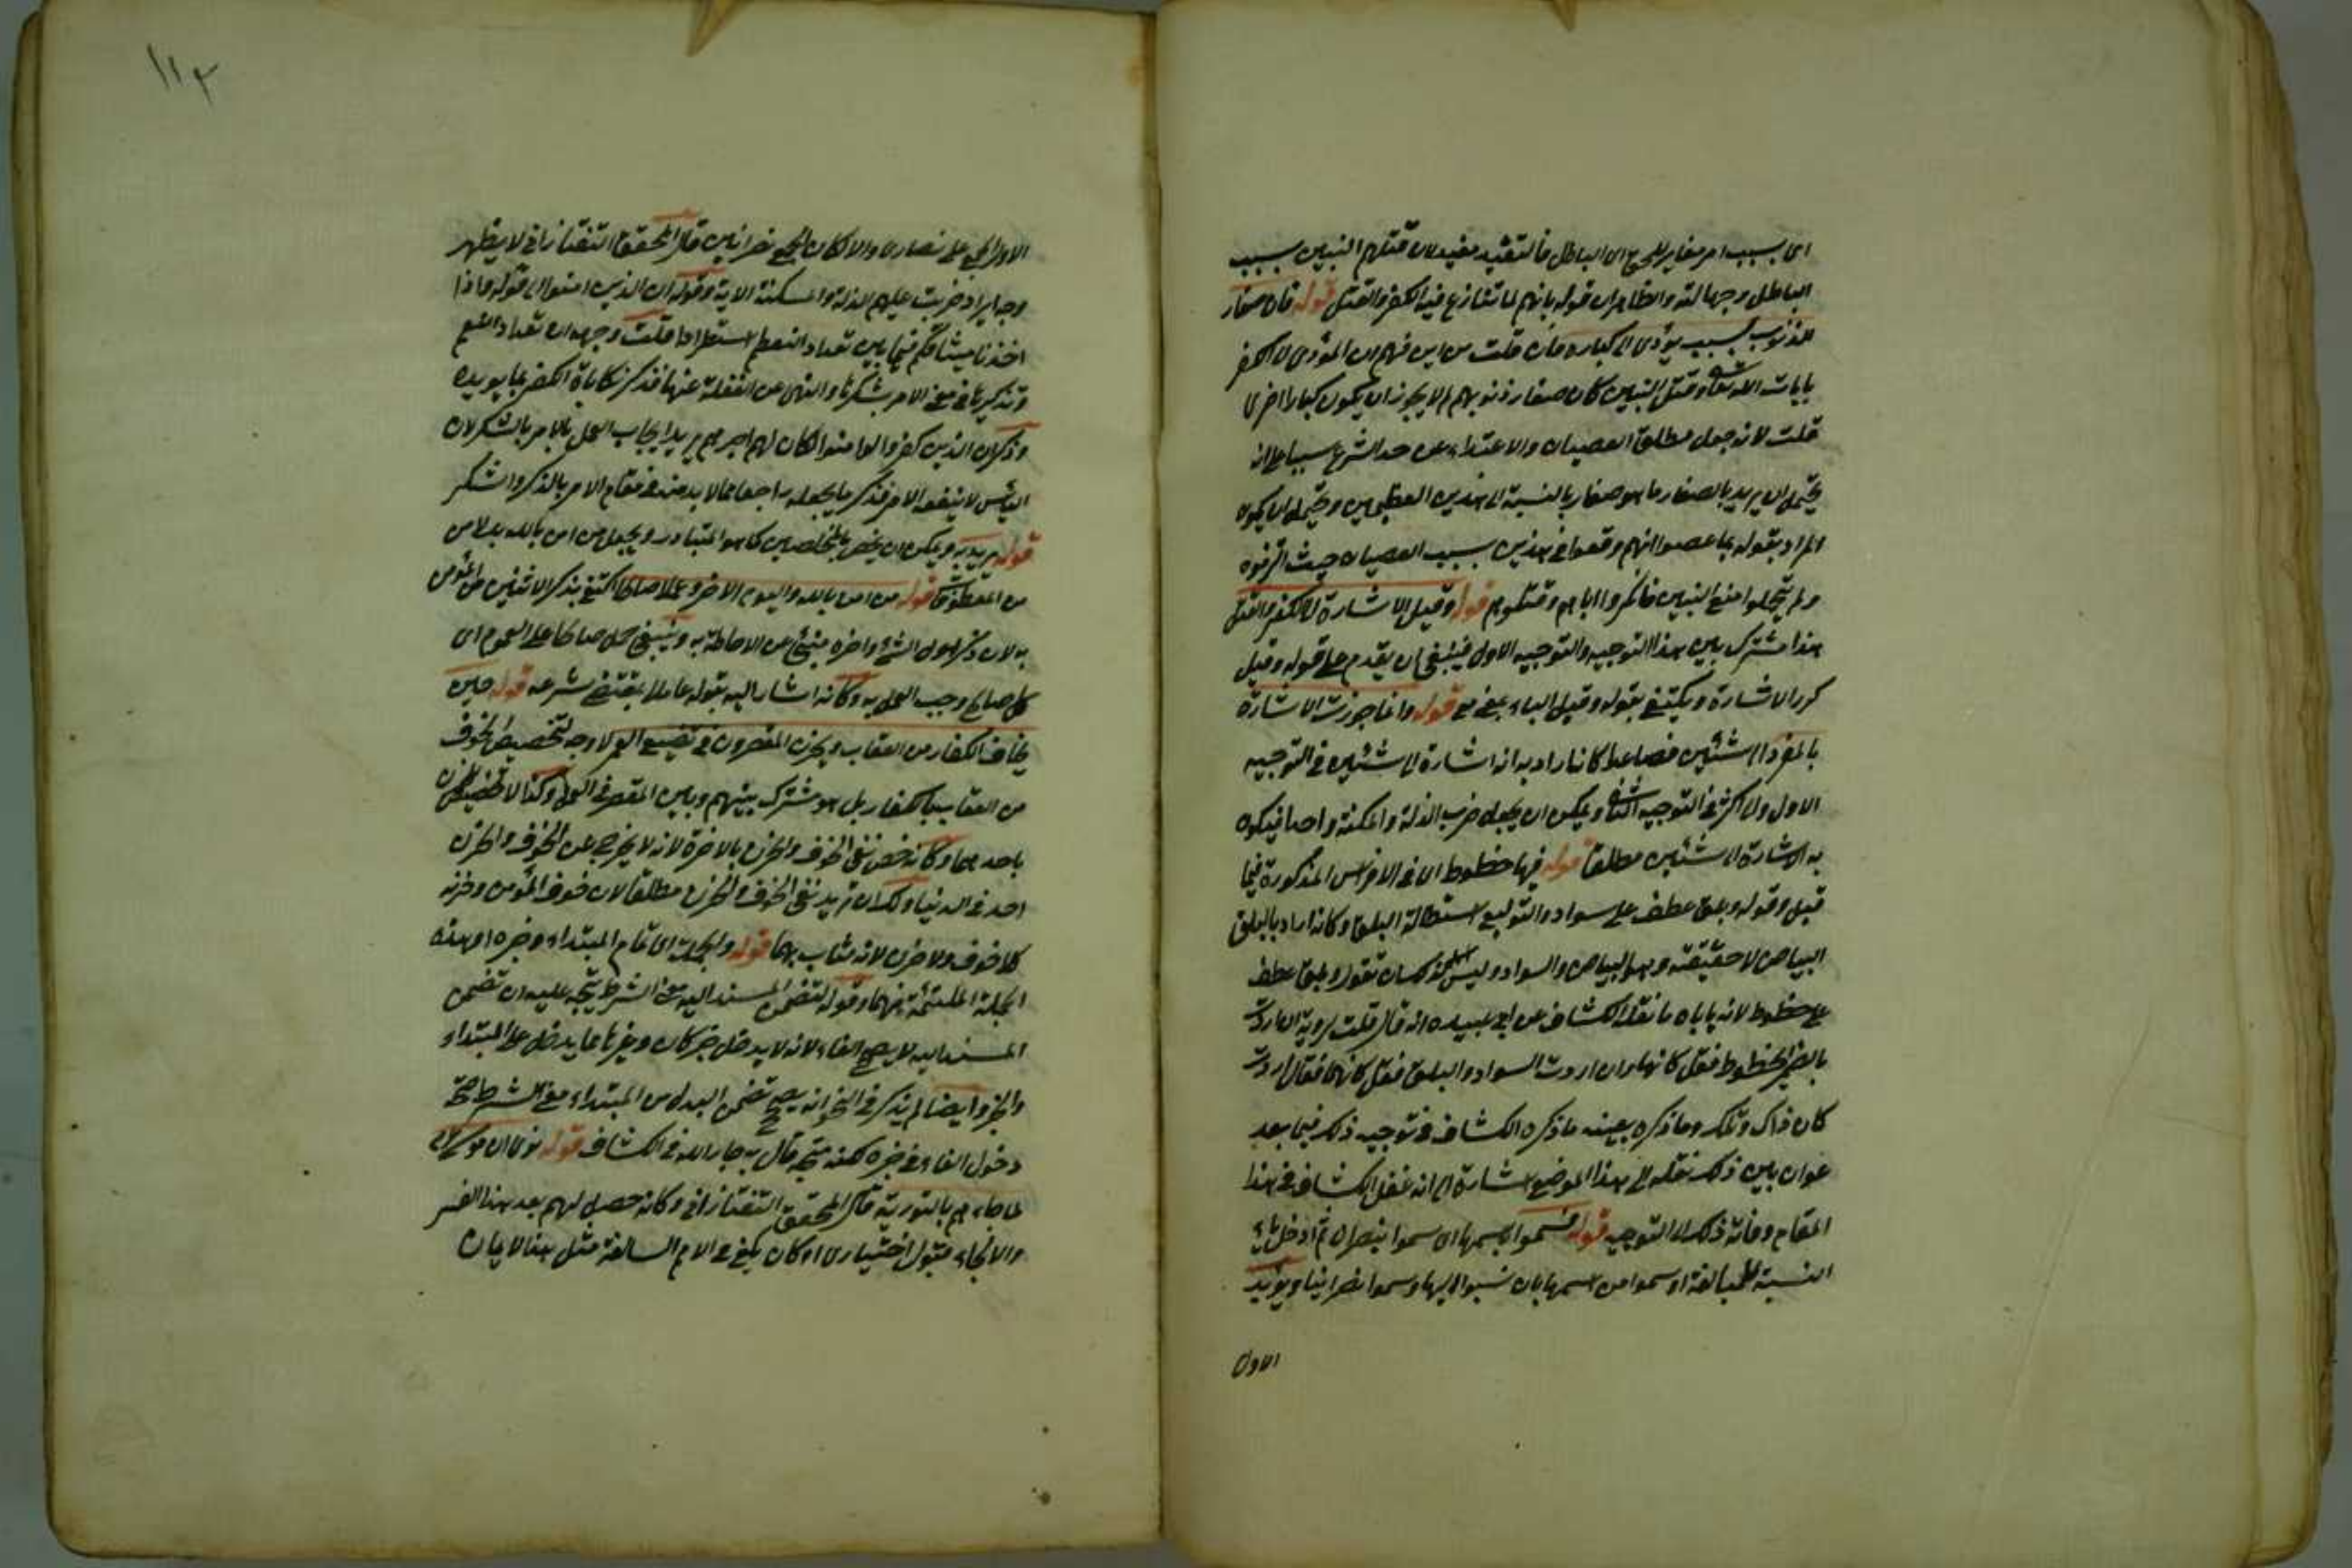 اى بسبب امر مغاير للحق اى الباطل فالتقييد مفيد لان قتلهم النبيين بسبب
الباطل وجهالته والظاهر ان قوله بانهم لما تنازع فيه الكفر والقتل قوله فان صغار
الذنوب سبب يؤدى الى كباره فان قلت من اين فهم ان المؤدى الى الكفر
بايات الله تعالى وقتل النبيين كان صغار ذنوبهم لم لا يجوز ان يكون كبارا اخرى
قلت لانه جعل مطلق العصيان والاعتداء عن حد الشرع سببا على انه
يحتمل ان يريد بالصغار ما هو صغار بالنسبة الى هذين العظيمين ويحتمل ان يكون
المراد بقوله بما عصوا انهم وقعوا فى هذين بسبب العصيان حيث
ولم يتحملوا منع النبيين فانكروا اياهم وقتلوهم قوله وقيل الاشارة الى الكفر والقتل
هذا مشترك بين هذا التوجيه والتوجيه الاول فينبغى ان يقدم على قوله وقيل
كرر الاشارة ويكتفى بقوله وقيل الباء بمعنى مع قوله وانما جوزت الاشارة
بالمفرد الى شيئين فصاعدا كانه اراد به انه اشارة الى شيئين فى التوجيه
الاول والى اكثر فى التوجيه الثانى ويمكن ان يجعل ضرب الذلة والمسكنة واحدا فيكون
به الاشارة الى شيئين مطلقا قوله فيها خطوط اى فى الافراس المذكورة فيما
قبل وقوله وبلق عطف على سواد والتوليع استطالة البلق وكانه اراد بالبلق
البياض لا حقيقته وهو البياض والسواد وليس لك ان تقول وبلق عطف
على خطوط لانه ياباه ما نقله الكشاف عن ابى عبيده انه قال قلت لروبة ان اردت
بالضمير الخطوط فقل كانها وان اردت السواد والبلق فقل كانهما فقال اردت
كان ذاك وتلك وما ذكره بعينه ما ذكره الكشاف فى توجيه ذلك فيما بعد
عوان بين ذلك نقله الى هذا الموضع اشارة الى انه غفل الكشاف فى هذا
المقام وفاته ذلك التوجيه قوله فسموا باسمها اى سموا بنصران ثم ادخل ياء
النسبة للمبالغة او سموا من اسمها بان نسبوا اليها وسموا نصرانيا ويؤيد
الاول
١١٣
الاول الجمع على نصارى والا لكان الجمع نصرانيين قال المحقق التفتازانى لا يظهر
وجه ايراد ضربت عليهم الذلة والمسكنة الاية وقوله ان الذين امنوا الى قوله واذ
اخذنا ميثاقكم فيما بين تعداد النعم استطرادا قلت وجهه ان تعداد النعم
وتذكيرها فى معنى الامر بشكرها والنهى عن الغفلة عنها فذكر مكافاة الكفر بما يؤيده
وذكر ان الذين كفروا لو امنوا لكان لهم اجرهم يريد ايجاب العمل بالامر بالشكر لان
اليأس لا ينفعه الامر فذكر ما يجعله راجعا مما لا بد منه فى مقام الامر بالذكر والشكر
قوله يريد به ويمكن ان يخص بالمخلصين كما هو المتبادر ويجعل من امن بالله بدلا من
من المعطوف قوله من امن بالله واليوم الاخر وعمل صالحا اكتفى بذكر الاثنين من المؤمن
به لان ذكر اول الشئ واخره منبئ عن الاحاطة به وينبغى حمل صالحا على العموم اى
كل صالح وجب العمل به وكانه اشار اليه بقوله عاملا بمقتضى شرعه قوله حين
يخاف الكفار من العقاب ويحزن المقصرون فى تضييع العمر لا وجه لتخصيص الخوف
من العقاب بالكفار بل هو مشترك بينهم وبين المقصر فى العمل وكذا لا تخصيص للحزن
باحدهما وكانه خص نفى الخوف والحزن بالاخرة لانه لا يخرج عن الخوف والحزن
احد فى الدنيا ولك ان تريد نفى الخوف والحزن مطلقا لان خوف المؤمن وحزنه
كلا خوف ولا حزن لانه مثاب بهما قوله والجملة اى تمام المبتداء وخبره او هذه
الجملة الملتئمة منهما وقوله لتضمن المسند اليه معنى الشرط يتجه عليه ان تضمن
المسند اليه لا يصحح الفاء لانه لا يدخل خبر كان وغيرها مما يدخل على المبتداء
والخبر وايضا لم يذكر فى النحو انه يصح تضمن البدل من المبتداء معنى الشرط صحة
دخول الفاء فى خبره لكنه متجه قال به جار الله فى الكشاف قوله روى ان موسى
لما جاءهم بالتورية قال المحقق التفتازانى وكانه حصل لهم بعد هذا القسر
والالجاء قبول اختيارى او كان يكفى فى الامم السالفة مثل هذا الايمان